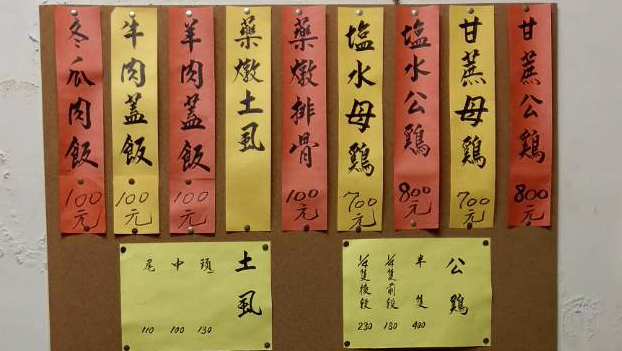 甘蔗公鷄 800元
甘蔗母鷄 700元
塩水公鷄 800元
塩水母鷄 700元
藥燉排骨 100元
藥燉土虱
羊肉蓋飯 100元
牛肉蓋飯 100元
冬瓜肉飯 100元
公鷄
半隻 400
¼隻前段 180
¼隻後段 230
土虱
頭 130
中 100
尾 110